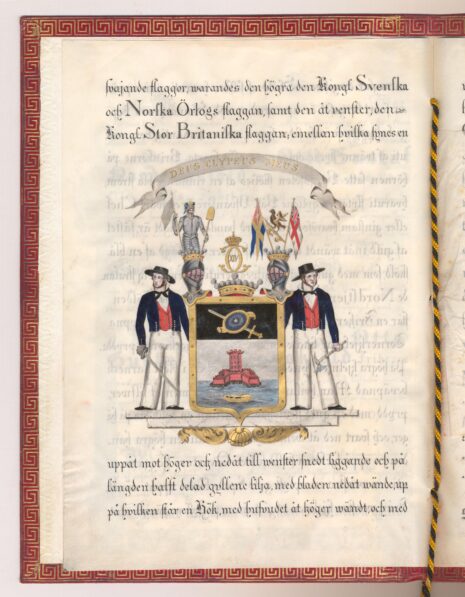 svajande flaggor, warandes den högra den Kongl. Svenska
och Norska Örlogs flaggan, samt den åt venster, den
Kongl. Stor Britaniska flaggan, emellan hvilka synes en
DEUS CLYPEUS MEUS
uppåt mot höger och nedåt till wenster snedt liggande och på
längden halft delad gyllene lilja, med bladen nedåt wände, up
på hvilken står en Hök, med hufvudet åt höger wändt, och med